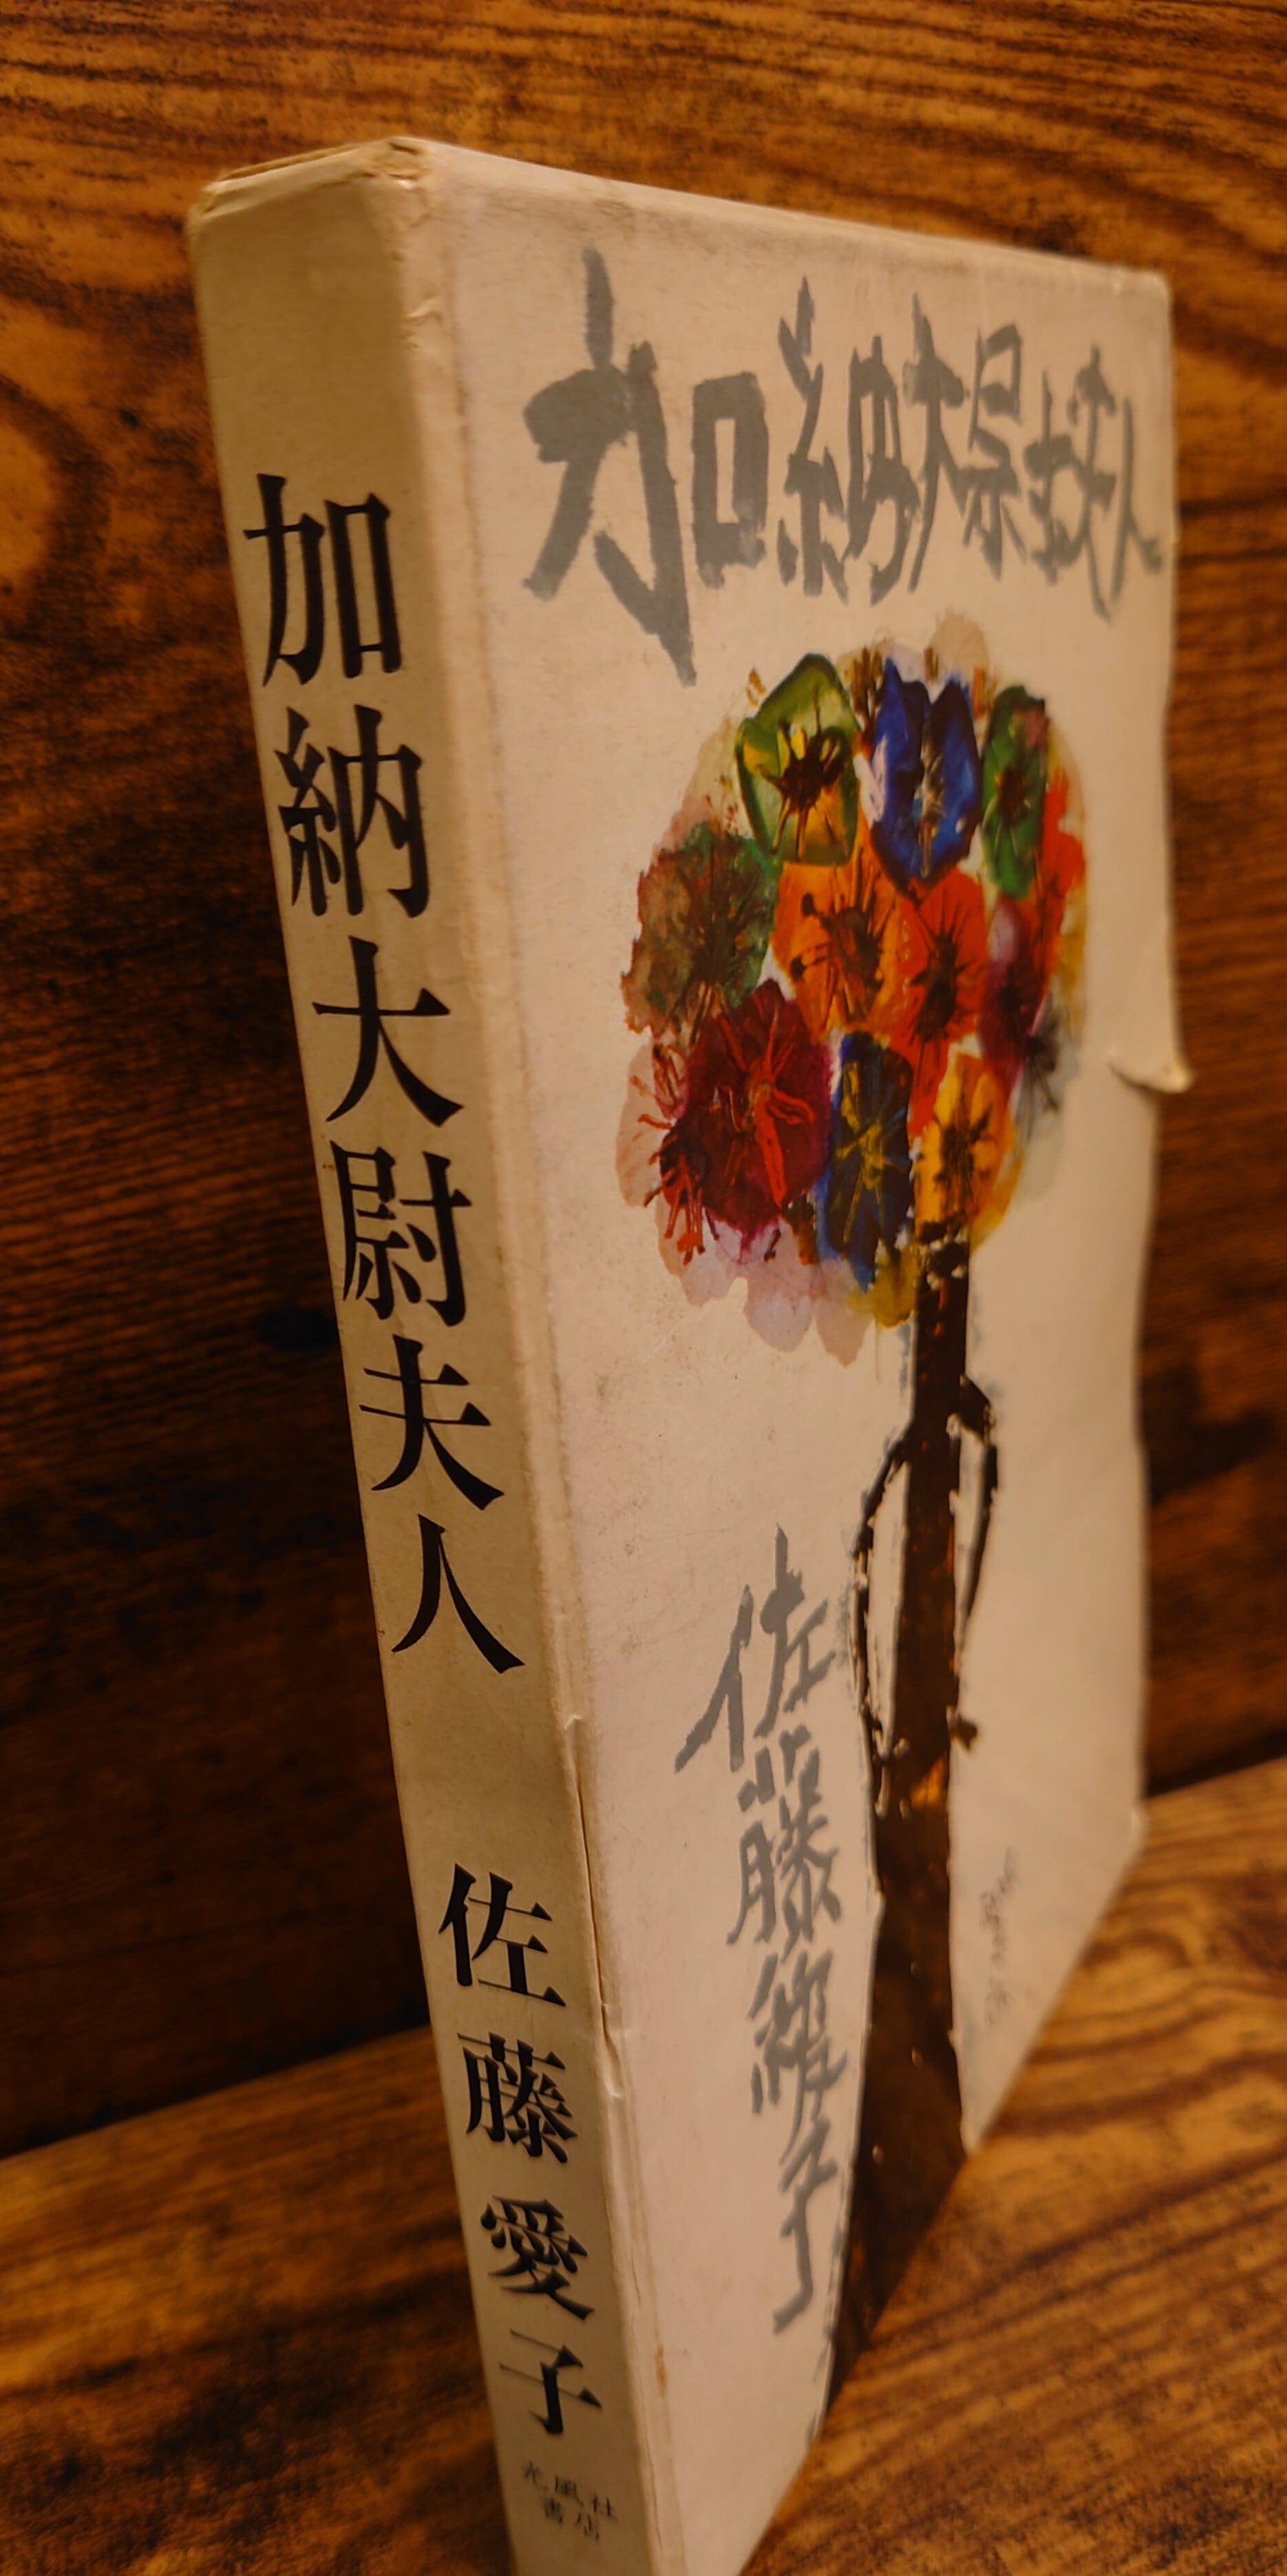 加納大尉夫人
佐藤愛子
光風社
書店
加納大尉夫人
佐藤愛子